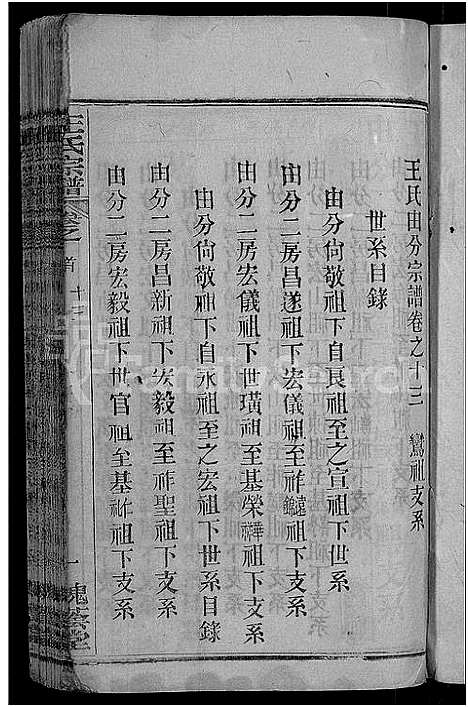 王氏由分宗譜卷之十三 鸞祖支系
世系目錄
由分向敬祖下自長祖至之宣祖下世系
由分二房昌遂祖下宏儀祖至祥遠鐙祖下支系
由分二房宏儀祖下世璜祖至基榮祥華祖下支系
由分向敬祖下自永祖至之宏祖下世系目錄
由分二房昌新祖下宏毅祖至祚聖祖下支系
由分二房宏毅祖下世官祖至基祚祖下支系
王氏宗譜
卷之首
十三
一 槐蔭堂
FamilySearch